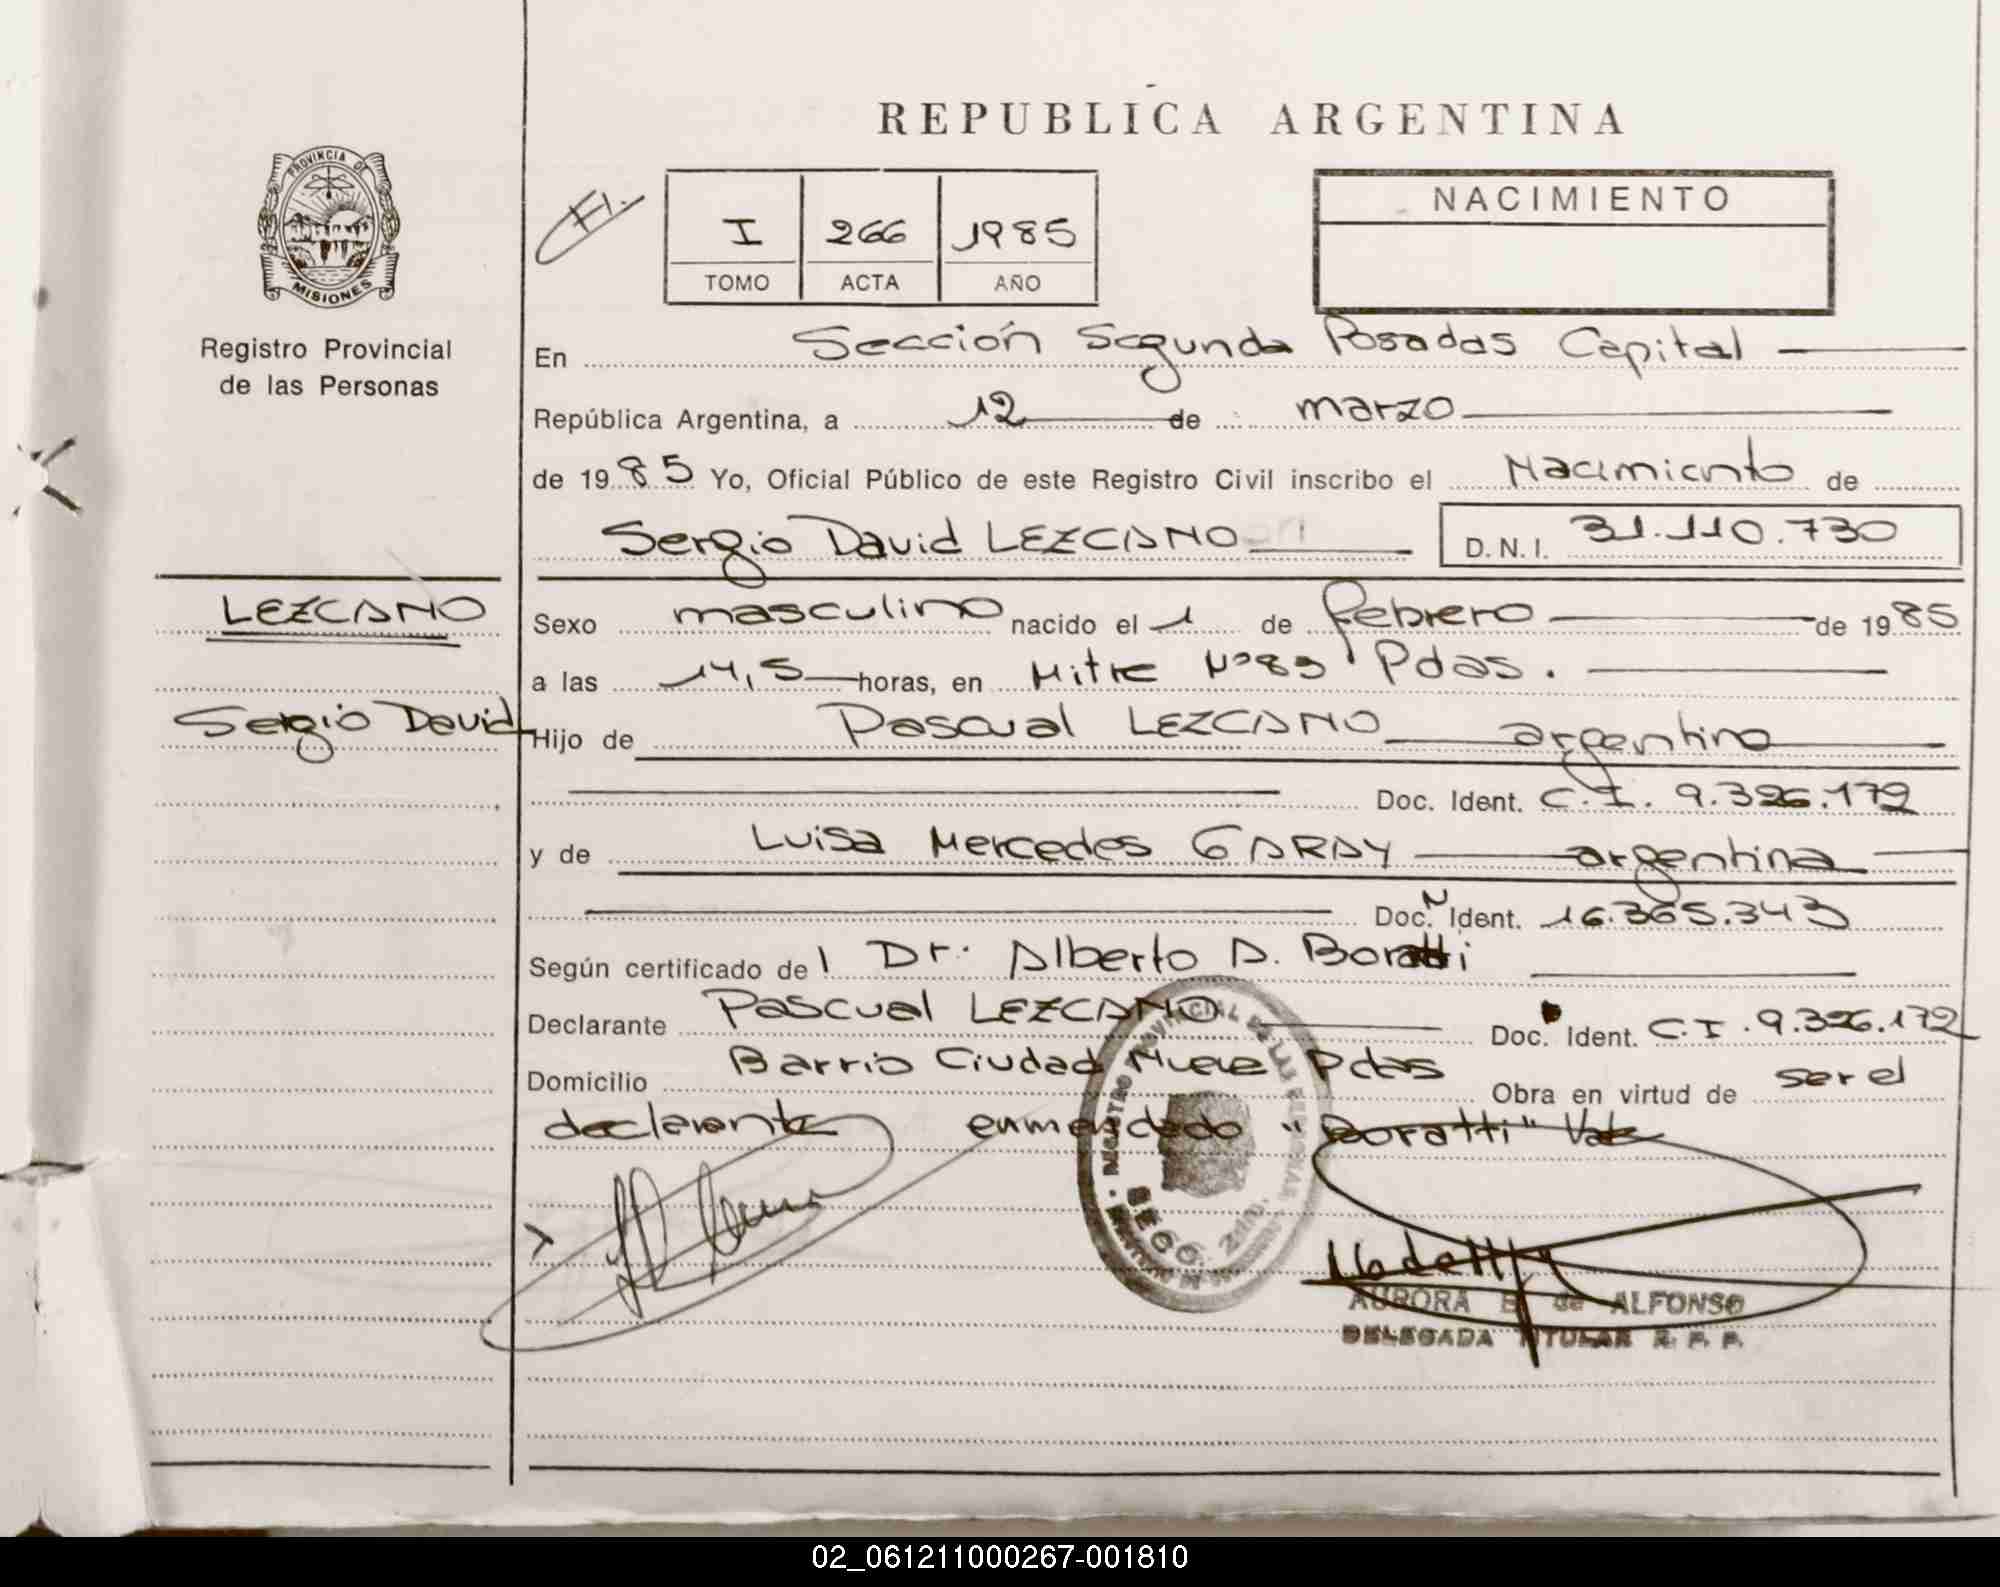 REPUBLICA ARGENTINA
PROVINCIA DE
MISIONES
Registro Provincial
de las Personas
I 266 1985
TOMO ACTA AÑO
NACIMIENTO
En Sección Segunda Posadas Capital
República Argentina, a 12 de marzo
de 1985 Yo, Oficial Público de este Registro Civil inscribo el Nacimiento de
Sergio David LEZCANO D. N. I. 31.110.730
LEZCANO
Sergio David
Sexo masculino nacido el 1 de febrero de 1985
a las 14,5 horas, en Mitre Nº83 Pdas.
Hijo de Pascual LEZCANO argentino
Doc. Ident. C.I. 9.326.172
y de Luisa Mercedes GARAY argentina
Doc. Ident. 16.365.343
Según certificado de l Dr. Alberto A. Boratti
Declarante Pascual LEZCANO Doc. Ident. C.I. 9.326.172
Domicilio Barrio Ciudad Nueva Pdas Obra en virtud de ser el
declarante enmendado "Boratti" Vale
REGISTRO PROVINCIAL DE LAS PERSONAS
SECC. 2da.
AURORA B de ALFONSO
DELEGADA TITULAR R. P. P.
02_061211000267-001810